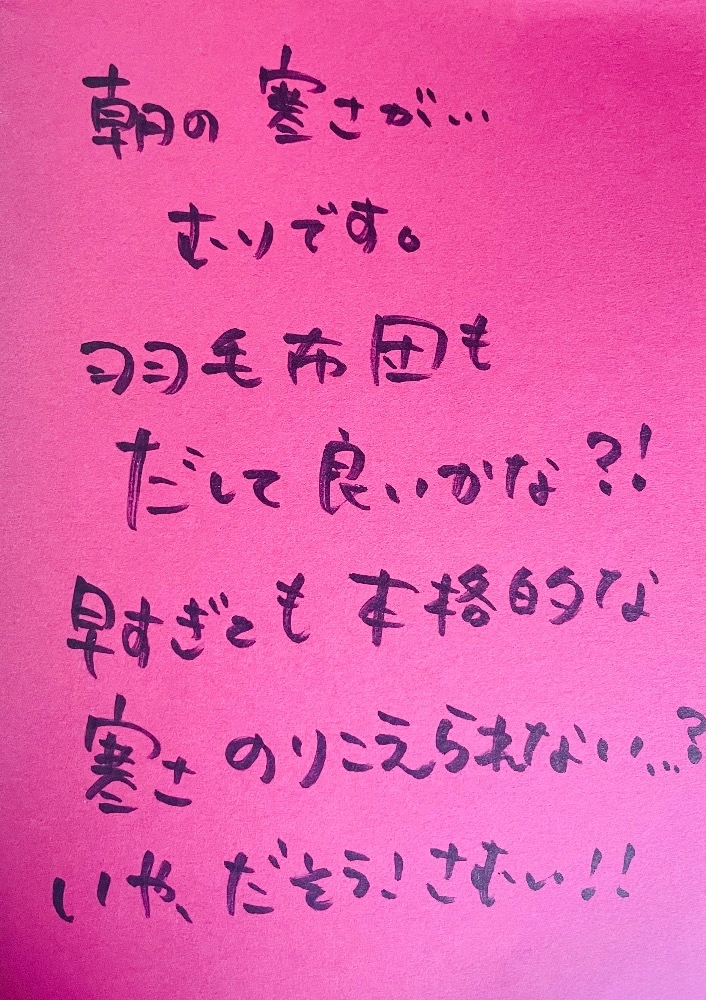 朝の寒さが…
むりです。
羽毛布団も
だして良いかな?!
早すぎても本格的な
寒さのりこえられない…?
いや、だそう!さむい!!